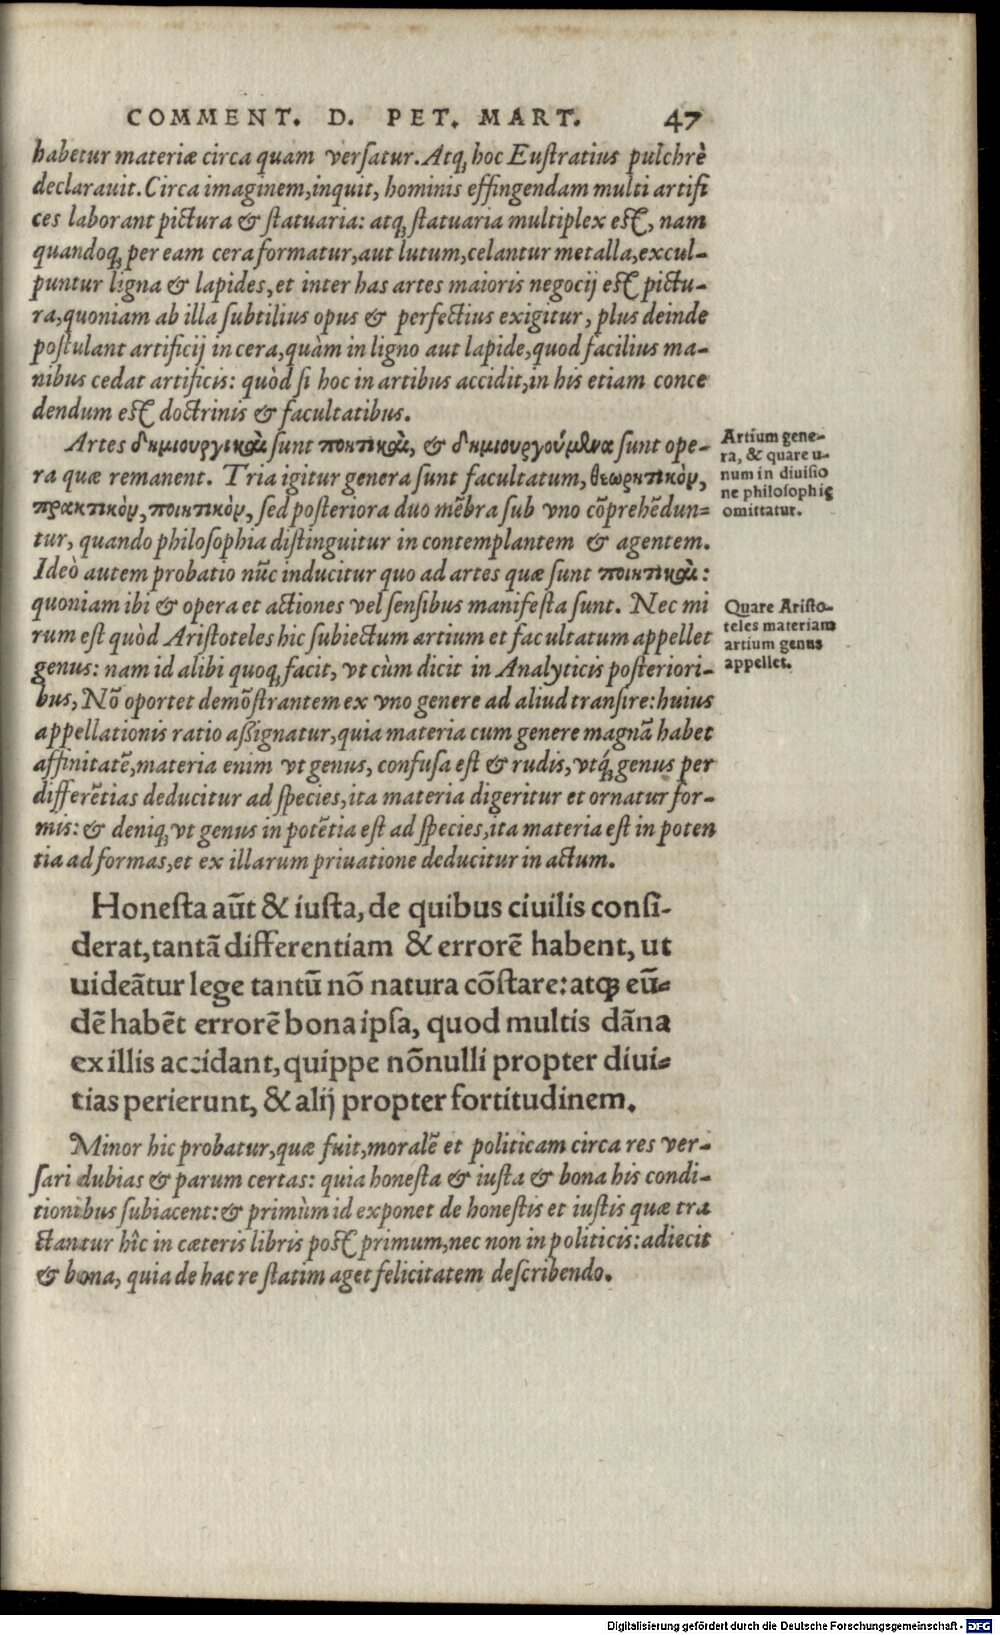 COMMENT. D. PET. MART. 47
habetur materiæ circa quam versatur. Atq; hoc Eustratius pulchrè
declarauit. Circa imaginem, inquit, hominis effingendam multi artifi
ces laborant pictura & statuaria: atq; statuaria multiplex est, nam
quandoq; per eam cera formatur, aut lutum, celantur metalla, excul-
puntur ligna & lapides, et inter has artes maioris negocij est pictu-
ra, quoniam ab illa subtilius opus & perfectius exigitur, plus deinde
postulant artificij in cera, quàm in ligno aut lapide, quod facilius ma-
nibus cedat artificis: quòd si hoc in artibus accidit, in his etiam conce
dendum est doctrinis & facultatibus.
Artes δημιουργικαὶ sunt ποιητικαὶ, & δημιουργούμενα sunt ope-
ra quæ remanent. Tria igitur genera sunt facultatum, θεωρητικὸν,
πρακτικὸν, ποιητικὸν, sed posteriora duo mẽbra sub vno cõprehẽdun=
tur, quando philosophia distinguitur in contemplantem & agentem.
Ideò autem probatio nũc inducitur quo ad artes quæ sunt ποιητικαὶ:
quoniam ibi & opera et actiones vel sensibus manifesta sunt. Nec mi
rum est quòd Aristoteles hic subiectum artium et facultatum appellet
genus: nam id alibi quoq; facit, vt cùm dicit in Analyticis posteriori-
bus, Nõ oportet demõstrantem ex vno genere ad aliud transire: huius
appellationis ratio assignatur, quia materia cum genere magnã habet
affinitatẽ, materia enim vt genus, confusa est & rudis, vtq́; genus per
differẽtias deducitur ad species, ita materia digeritur et ornatur for-
mis: & deniq; vt genus in potẽtia est ad species, ita materia est in poten
tia ad formas, et ex illarum priuatione deducitur in actum.
Artium gene-
ra, & quare u-
num in diuisio
ne philosophię
omittatur.
Quare Aristo-
teles materiam
artium genus
appellet.
Honesta aũt & iusta, de quibus ciuilis consi-
derat, tantã differentiam & errorẽ habent, ut
uideãtur lege tantũ nõ natura cõstare: atq; eũ=
dẽ habẽt errorẽ bona ipsa, quod multis dãna
ex illis accidant, quippe nõnulli propter diui=
tias perierunt, & alij propter fortitudinem.
Minor hic probatur, quæ fuit, moralẽ et politicam circa res ver-
sari dubias & parum certas: quia honesta & iusta & bona his condi-
tionibus subiacent: & primùm id exponet de honestis et iustis quæ tra
ctantur hîc in cæteris libris post primum, nec non in politicis: adiecit
& bona, quia de hac re statim aget felicitatem describendo.
Digitalisierung gefördert durch die Deutsche Forschungsgemeinschaft - DFG